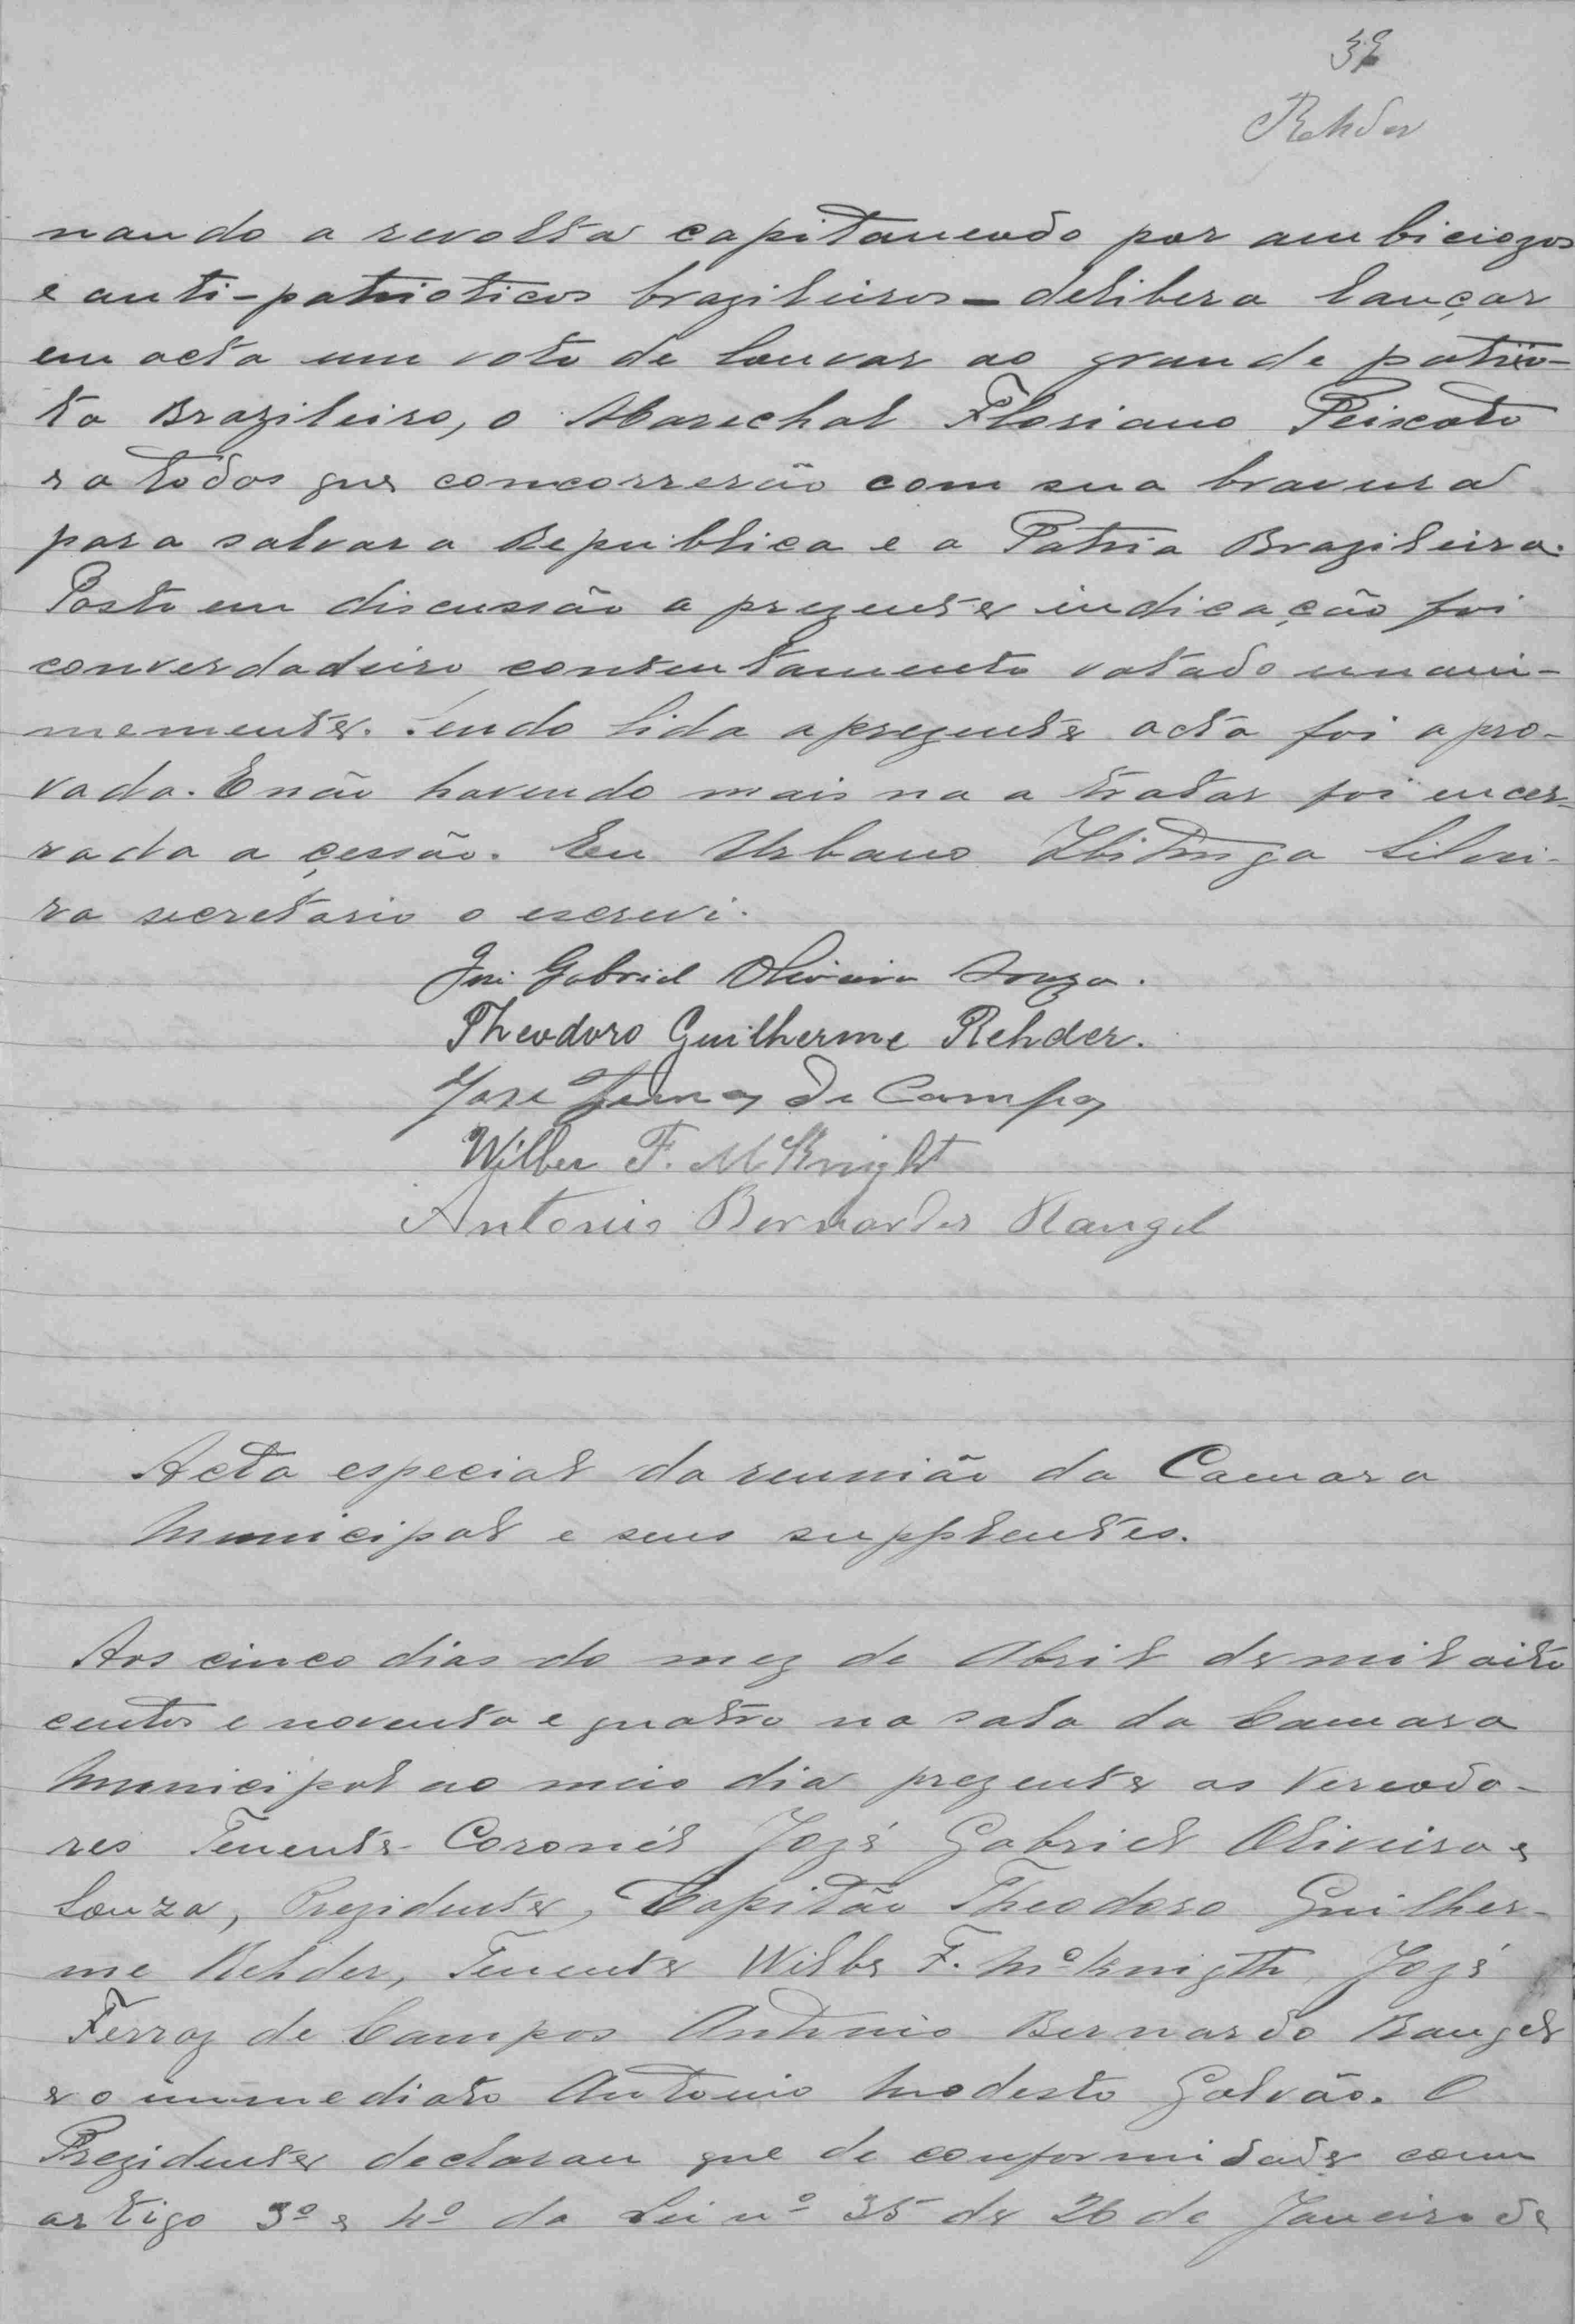 Rehder
nando a revolta capitaneado por ambiciozos
e anti-patrioticos brazileiros - delibera lançar
em acta um voto de louvor ao grande patrio-
ta Brazileiro, o Marechal Floriano Peixoto
e a todos que concorrerão com sua bravura
para salvar a Republica e a Patria Brazileira.
Posto em discussão a prezente indicação foi
com verdadeiro contentamento votado unani-
memente. Sendo lida a prezente acta foi apro-
vada. E não havendo mais na a tratar foi encer-
rada a çessão. Eu Urbano Ibitinga Silvei-
ra secretario o escrevi.
José Gabriel Oliveira Souza.
Theodoro Guilherme Rehder.
Jose Ferraz de Campos
Wilber F. McKnight
Antonio Bernardes Rangel
Acta especial da reunião da Camara
Municipal e seus supplentes.
Aos cinco dias do mez de Abril de mil oito
centos e noventa e quatro na sala da Camara
Municipal ao meio dia prezente os Vereado-
res Tenente Coronél Jozé Gabriel Oliveira e
Souza, Prezidente, Capitão Theodoro Guilher-
me Rehder, Tenente Wilbe F. McKnigth, Jozé
Ferraz de Campos Antonio Bernardo Rangel
e o immediato Antonio Modesto Galvão. O
Prezidente declarou que de conformidade com
artigo 3º e 4º da Lei nº 35 de 26 de Janeiro de